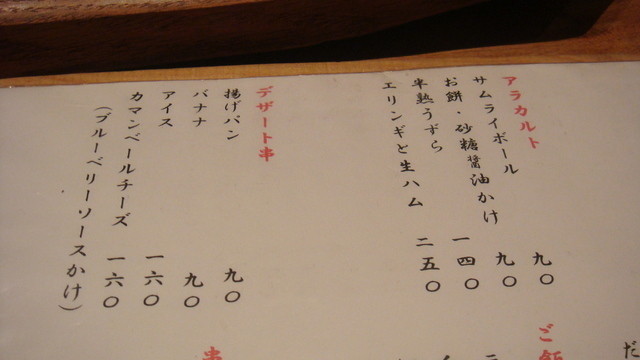 アラカルト
サムライボール 九〇
お餅・砂糖醤油かけ 九〇
半熟うずら 一四〇
エリンギと生ハム 二五〇
デザート串
揚げパン 九〇
バナナ 九〇
アイス 一六〇
カマンベールチーズ 一六〇
（ブルーベリーソースかけ）
だ
ご飯
串